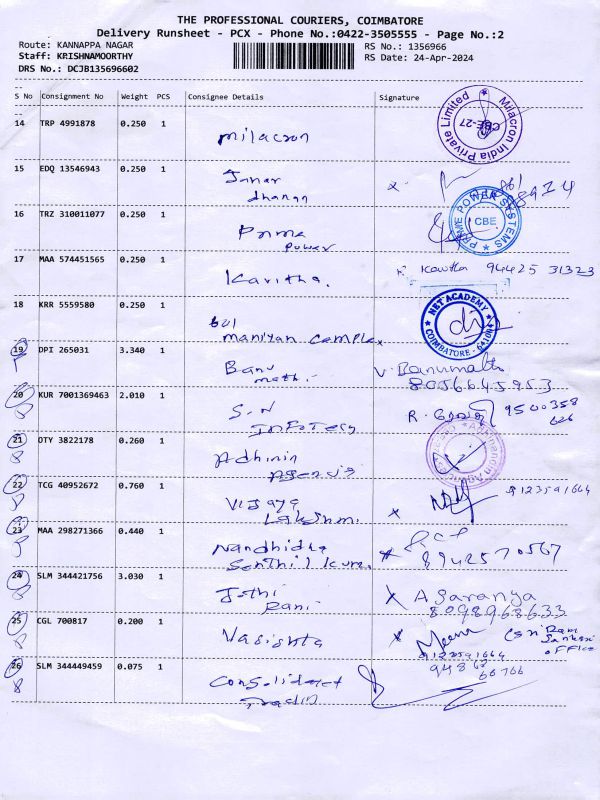 THE PROFESSIONAL COURIERS, COIMBATORE
Delivery Runsheet - PCX - Phone No.:0422-3505555 - Page No.:2
Route: KANNAPPA NAGAR
RS No.: 1356966
Staff: KRISHNAMOORTHY
RS Date: 24-Apr-2024
DRS No.: DCJB135696602
S No Consignment No Weight PCS Consignee Details Signature
14 TRP 4991878 0.250 1 Milacron
Milacron India Private Limited
CBE-27
15 EDQ 13546943 0.250 1 Janar
dhanan
16 TRZ 310011077 0.250 1 Prime
Power
PRIME POWER SYSTEMS
CBE
17 MAA 574451565 0.250 1 Kavitha. Kavitha 94425 31323
18 KRR 5559580 0.250 1
Maniyan Complex
NET ACADEMY
COIMBATORE
19 DPI 265031 3.340 1 Banu
mathi. V. Banumathi
8056645953
20 KUR 7001369463 2.010 1 S.N
Infotecy
R. 9500358
21 OTY 3822178 0.260 1 Adhinin
Agencis
22 TCG 40952672 0.760 1 Vijaya
Lakshmi. 9123591664
23 MAA 298271366 0.440 1 Nandhidha
Senthil Kum.
8942570567
24 SLM 344421756 3.030 1 Jothi
Rani
A Saranya
8098968633
25 CGL 700817 0.200 1 Vasishta
Meena
(Sri Ram
Sankari
office
9123591664
26 SLM 344449459 0.075 1 Consolidact
Tradin
94862
66766